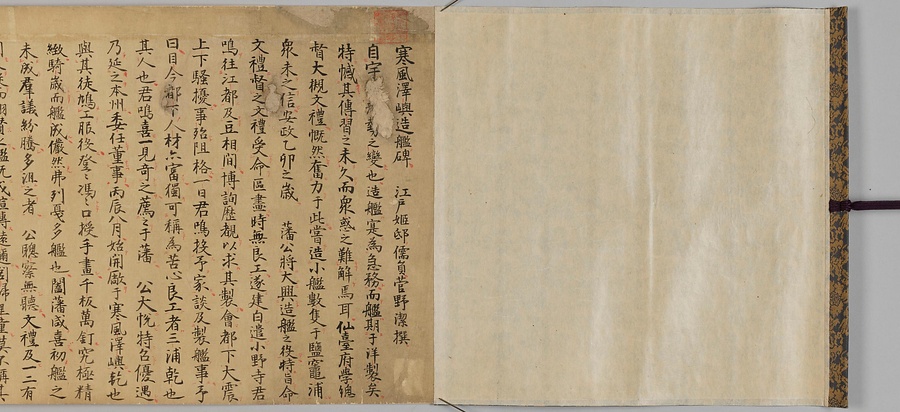 寒風澤嶼造艦碑　江戸姫邸儒員菅野潔撰
自宇　　之變也造艦寔為急務而艦期于洋製矣
特憾其傳習之未久而衆惑之難解焉耳仙臺府學總
督大槻文禮慨然奮力于此當造小艦數隻于鹽竈浦
衆未之信安政乙卯之歲　藩公將大興造艦之役特旨命
文禮督之文禮受命區畫時無良工遂建白遣小野寺君
鳴往江都及豆相間博詢歷覩以求其製會都下大震
上下騷擾事殆阻格一日君鳴投予家談及製艦事予
曰目今都下人材亦富獨可稱為苦心良工者三浦乾也
其人也君鳴喜一見奇之薦之于藩　公大悅特召優遇
乃延之本州委任董事丙辰八月始開廠于寒風澤嶼乾也
與其徒鳩工服役登々馮々口授手畫千板萬釘究極精
緻騎歲而艦成儼然弗列戛多艦也闔藩咸喜初艦之
未成羣議紛騰多沮之者　公聰察無聽文禮及一二有